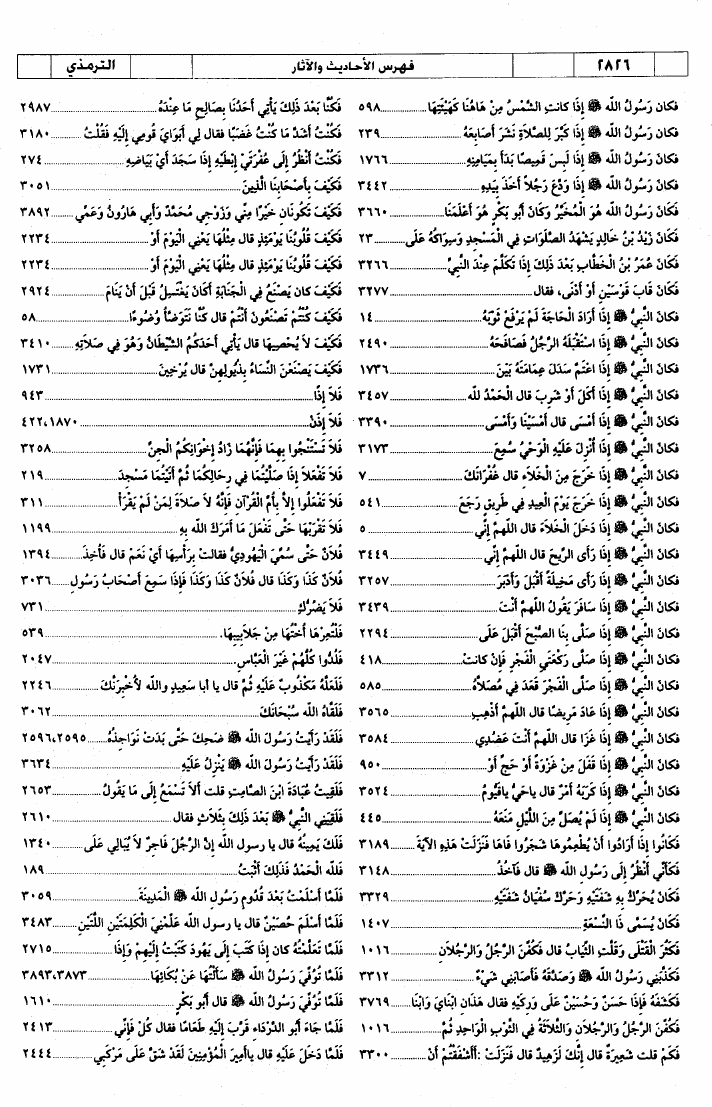 ٢٨٢٦ فهرس الأحاديث والآثار الترمذي
فكان رَسُولُ الله ﷺ إِذَا كانتِ الشَّمْسُ مِنْ هَاهُنَا كَهَيْئَتِهَا ٥٩٨
فكان رَسُولُ الله ﷺ إِذَا كَبَّرَ لِلصَّلاَةِ نَشَرَ أَصَابِعَهُ ٢٣٩
فكان رَسُولُ الله ﷺ إِذَا لَبِسَ قَمِيصًا بَدَأَ بِمَيَامِنِهِ ١٧٦٦
فكان رَسُولُ الله ﷺ إِذَا وَدَّعَ رَجُلاً أَخَذَ بِيَدِهِ ٣٤٤٢
فكان رَسُولُ الله ﷺ هُوَ المُخَيَّرُ وَكَانَ أَبُو بَكْرٍ هُوَ أَعْلَمَنَا ٣٦٦٠
فَكَانَ زَيْدُ بْنُ خَالِدٍ يَشْهَدُ الصَّلَوَاتِ فِي المَسْجِدِ وَسِوَاكُهُ عَلَى ٢٣
فَكَانَ عُمَرُ بْنُ الخَطَّابِ بَعْدَ ذَلِكَ إِذَا تَكَلَّمَ عِنْدَ النَّبِيِّ ٣٢٦٦
فَكَانَ قَابَ قَوْسَيْنِ أَوْ أَدْنَى، فقال ٣٢٧٧
فكان النَّبِيُّ ﷺ إِذَا أَرَادَ الْحَاجَةَ لَمْ يَرْفَعْ ثَوْبَهُ ١٤
فكان النَّبِيُّ ﷺ إِذَا اسْتَقْبَلَهُ الرَّجُلُ فَصَافَحَهُ ٢٤٩٠
فكان النَّبِيُّ ﷺ إِذَا اعْتَمَّ سَدَلَ عِمَامَتَهُ بَيْنَ ١٧٣٦
فكان النَّبِيُّ ﷺ إِذَا أَكَلَ أَوْ شَرِبَ قال الْحَمْدُ لله ٣٤٥٧
فكان النَّبِيُّ ﷺ إِذَا أَمْسَى قال أَمْسَيْنَا وَأَمْسَى ٣٣٩٠
فكان النَّبِيُّ ﷺ إِذَا أُنْزِلَ عَلَيْهِ الْوَحْيُ سُمِعَ ٣١٧٣
فكان النَّبِيُّ ﷺ إِذَا خَرَجَ مِنَ الْخَلاَءِ قال غُفْرَانَكَ ٧
فكان النَّبِيُّ ﷺ إِذَا خَرَجَ يَوْمَ الْعِيدِ فِي طَرِيقٍ رَجَعَ ٥٤١
فكان النَّبِيُّ ﷺ إِذَا دَخَلَ الْخَلاَءَ قال اللهمَّ إِنِّي ٥
فكان النَّبِيُّ ﷺ إِذَا رَأَى الرِّيحَ قال اللهمَّ إِنِّي ٣٤٤٩
فكان النَّبِيُّ ﷺ إِذَا رَأَى مَخِيلَةً أَقْبَلَ وَأَدْبَرَ ٣٢٥٧
فكان النَّبِيُّ ﷺ إِذَا سَافَرَ يَقُولُ اللهمَّ أَنْتَ ٣٤٣٩
فكان النَّبِيُّ ﷺ إِذَا صَلَّى بِنَا الصُّبْحَ أَقْبَلَ عَلَى ٢٢٩٤
فكان النَّبِيُّ ﷺ إِذَا صَلَّى رَكْعَتَيِ الْفَجْرِ فَإِنْ كانتْ ٤١٨
فكان النَّبِيُّ ﷺ إِذَا صَلَّى الْفَجْرَ قَعَدَ فِي مُصَلاَّهُ ٥٨٥
فكان النَّبِيُّ ﷺ إِذَا عَادَ مَرِيضًا قال اللهمَّ أَذْهِبِ ٣٥٦٥
فكان النَّبِيُّ ﷺ إِذَا غَزَا قال اللهمَّ أَنْتَ عَضُدِي ٣٥٨٤
فكان النَّبِيُّ ﷺ إِذَا قَفَلَ مِنْ غَزْوَةٍ أَوْ حَجٍّ أَوْ ٩٥٠
فكان النَّبِيُّ ﷺ إِذَا كَرَبَهُ أَمْرٌ قال يَاحَيُّ يَاقَيُّومُ ٣٥٢٤
فكان النَّبِيُّ ﷺ إِذَا لَمْ يُصَلِّ مِنَ اللَّيْلِ مَنَعَهُ ٤٤٥
فَكَانُوا إِذَا أَرَادُوا أَنْ يُطْعِمُوهَا شَجَرُوا فَاهَا فَنَزَلَتْ هَذِهِ الآيَةَ ٣١٨٩
فَكَأَنِّي أَنْظُرُ إِلَى رَسُولِ الله ﷺ قال فَآخُذُ ٣١٤٨
فَكَانَ يُحَرِّكُ بِهِ شَفَتَيْهِ وَحَرَّكَ سُفْيَانُ شَفَتَيْهِ ٣٣٢٩
فَكَانَ يُسَمَّى ذَا النِّسْعَةِ ١٤٠٧
فَكَثُرَ الْقَتْلَى وَقَلَّتِ الثِّيَابُ قال فَكُفِّنَ الرَّجُلُ وَالرَّجُلاَنِ ١٠١٦
فَكَذَّبَنِي رَسُولُ الله ﷺ وَصَدَّقَهُ فَأَصَابَنِي شَيْءٌ ٣٣١٢
فَكَشَفَهُ فَإِذَا حَسَنٌ وَحُسَيْنٌ عَلَى وَرِكَيْهِ فقال هَذَانِ ابْنَايَ وَابْنَا ٣٧٦٩
فَكُفِّنَ الرَّجُلُ وَالرَّجُلاَنِ وَالثَّلاَثَةُ فِي الثَّوْبِ الْوَاحِدِ ثُمَّ ١٠١٦
فَكَمْ قلت شَعِيرَةٌ قال إِنَّكَ لَزَهِيدٌ قال فَنَزَلَتْ :أَأَشْفَقْتُمْ أَنْ ٣٣٠٠
فَكُنَّا بَعْدَ ذَلِكَ يَأْتِي أَحَدُنَا بِصَالِحِ مَا عِنْدَهُ ٢٩٨٧
فَكُنْتُ أَشَدَّ مَا كُنْتُ غَضَبًا فقال لِي أَبَوَايَ قُومِي إِلَيْهِ فَقُلْتُ ٣١٨٠
فَكُنْتُ أَنْظُرُ إِلَى عُفْرَتَيْ إِبْطَيْهِ إِذَا سَجَدَ أَيْ بَيَاضِهِ ٢٧٤
فَكَيْفَ بِأَصْحَابِنَا الَّذِينَ ٣٠٥١
فَكَيْفَ تَكُونَانِ خَيْرًا مِنِّي وَزَوْجِي مُحَمَّدٌ وَأَبِي هَارُونُ وَعَمِّي ٣٨٩٢
فَكَيْفَ قُلُوبُنَا يَوْمَئِذٍ قال مِثْلُهَا يَعْنِي الْيَوْمَ أَوْ ٢٢٣٤
فَكَيْفَ قُلُوبُنَا يَوْمَئِذٍ قال مِثْلُهَا يَعْنِي الْيَوْمَ أَوْ ٢٢٣٤
فَكَيْفَ كان يَصْنَعُ فِي الْجَنَابَةِ أَكَانَ يَغْتَسِلُ قَبْلَ أَنْ يَنَامَ ٢٩٢٤
فَكَيْفَ كُنْتُمْ تَصْنَعُونَ أَنْتُمْ قال كُنَّا نَتَوَضَّأُ وُضُوءًا ٥٨
فَكَيْفَ لاَ يُحْصِيهَا قال يَأْتِي أَحَدَكُمُ الشَّيْطَانُ وَهُوَ فِي صَلاَتِهِ ٣٤١٠
فَكَيْفَ يَصْنَعْنَ النِّسَاءُ بِذُيُولِهِنَّ قال يُرْخِينَ ١٧٣١
فَلاَ إِذًا ٩٤٣
فَلاَ إِذَنْ ٤٢٢،١٨٧٠
فَلاَ تَسْتَنْجُوا بِهِمَا فَإِنَّهُمَا زَادُ إِخْوَانِكُمُ الْجِنِّ ٣٢٥٨
فَلاَ تَفْعَلاَ إِذَا صَلَّيْتُمَا فِي رِحَالِكُمَا ثُمَّ أَتَيْتُمَا مَسْجِدَ ٢١٩
فَلاَ تَفْعَلُوا إِلاَّ بِأُمِّ الْقُرْآنِ فَإِنَّهُ لاَ صَلاَةَ لِمَنْ لَمْ يَقْرَأْ ٣١١
فَلاَ تَقْرَبْهَا حَتَّى تَفْعَلَ مَا أَمَرَكَ الله بِهِ ١١٩٩
فُلاَنٌ حَتَّى سُمِّيَ الْيَهُودِيُّ فقالت بِرَأْسِهَا أَيْ نَعَمْ قال فَأُخِذَ ١٣٩٤
فُلاَنٌ كَذَا وَكَذَا قال فُلاَنٌ كَذَا وَكَذَا فَإِذَا سَمِعَ أَصْحَابُ رَسُولِ ٣٠٣٦
فَلاَ يَضُرُّكِ ٧٣١
فَلْتُعِرْهَا أُخْتُهَا مِنْ جَلاَبِيبِهَا. ٥٣٩
فَلُدُّوا كُلُّهُمْ غَيْرَ الْعَبَّاسِ. ٢٠٤٧
فَلَعَلَّهُ مَكْذُوبٌ عَلَيْهِ ثُمَّ قال يا ابا سَعِيدٍ والله لأُخْبِرَنَّكَ ٢٢٤٦
فَلَقَّاهُ الله سُبْحَانَكَ ٣٠٦٢
فَلَقَدْ رَأَيْتُ رَسُولَ الله ﷺ ضَحِكَ حَتَّى بَدَتْ نَوَاجِذُهُ ٢٥٩٦،٢٥٩٥
فَلَقَدْ رَأَيْتُ رَسُولَ الله ﷺ يَنْزِلُ عَلَيْهِ ٣٦٣٤
فَلَقِيتُ عُبَادَةَ ابْنَ الصَّامِتِ قلت أَلاَ تَسْمَعُ إِلَى مَا يَقُولُ ٢٦٥٣
فَلَقِيَنِي النَّبِيُّ ﷺ بَعْدَ ذَلِكَ بِثَلاَثٍ فقال ٢٦١٠
فَلَكَ يَمِينُهُ قال يا رسول الله إِنَّ الرَّجُلَ فَاجِرٌ لاَ يُبَالِي عَلَى ١٣٤٠
فَلله الْحَمْدُ فَذَلِكَ أَثْبَتُ ١٨٩
فَلَمَّا أَسْلَمْتُ بَعْدَ قُدُومِ رَسُولِ الله ﷺ المَدِينَةَ ٣٠٥٩
فَلَمَّا أَسْلَمَ حُصَيْنٌ قال يا رسول الله عَلِّمْنِيَ الْكَلِمَتَيْنِ اللَّتَيْنِ ٣٤٨٣
فَلَمَّا تَعَلَّمْتُهُ كان إِذَا كَتَبَ إِلَى يَهُودَ كَتَبْتُ إِلَيْهِمْ وَإِذَا ٢٧١٥
فَلَمَّا تُوُفِّيَ رَسُولُ الله ﷺ سَأَلْتُهَا عَنْ بُكَائِهَا ٣٨٩٣،٣٨٧٣
فَلَمَّا تُوُفِّيَ رَسُولُ الله ﷺ قال أَبُو بَكْرٍ ١٦١٠
فَلَمَّا جَاءَ أَبُو الدَّرْدَاءِ قَرَّبَ إِلَيْهِ طَعَامًا فقال كُلْ فَإِنِّي ٢٤١٣
فَلَمَّا دَخَلَ عَلَيْهِ قال ياأَمِيرَ الْمُؤْمِنِينَ لَقَدْ شَقَّ عَلَى مَرْكَبِي ٢٤٤٤